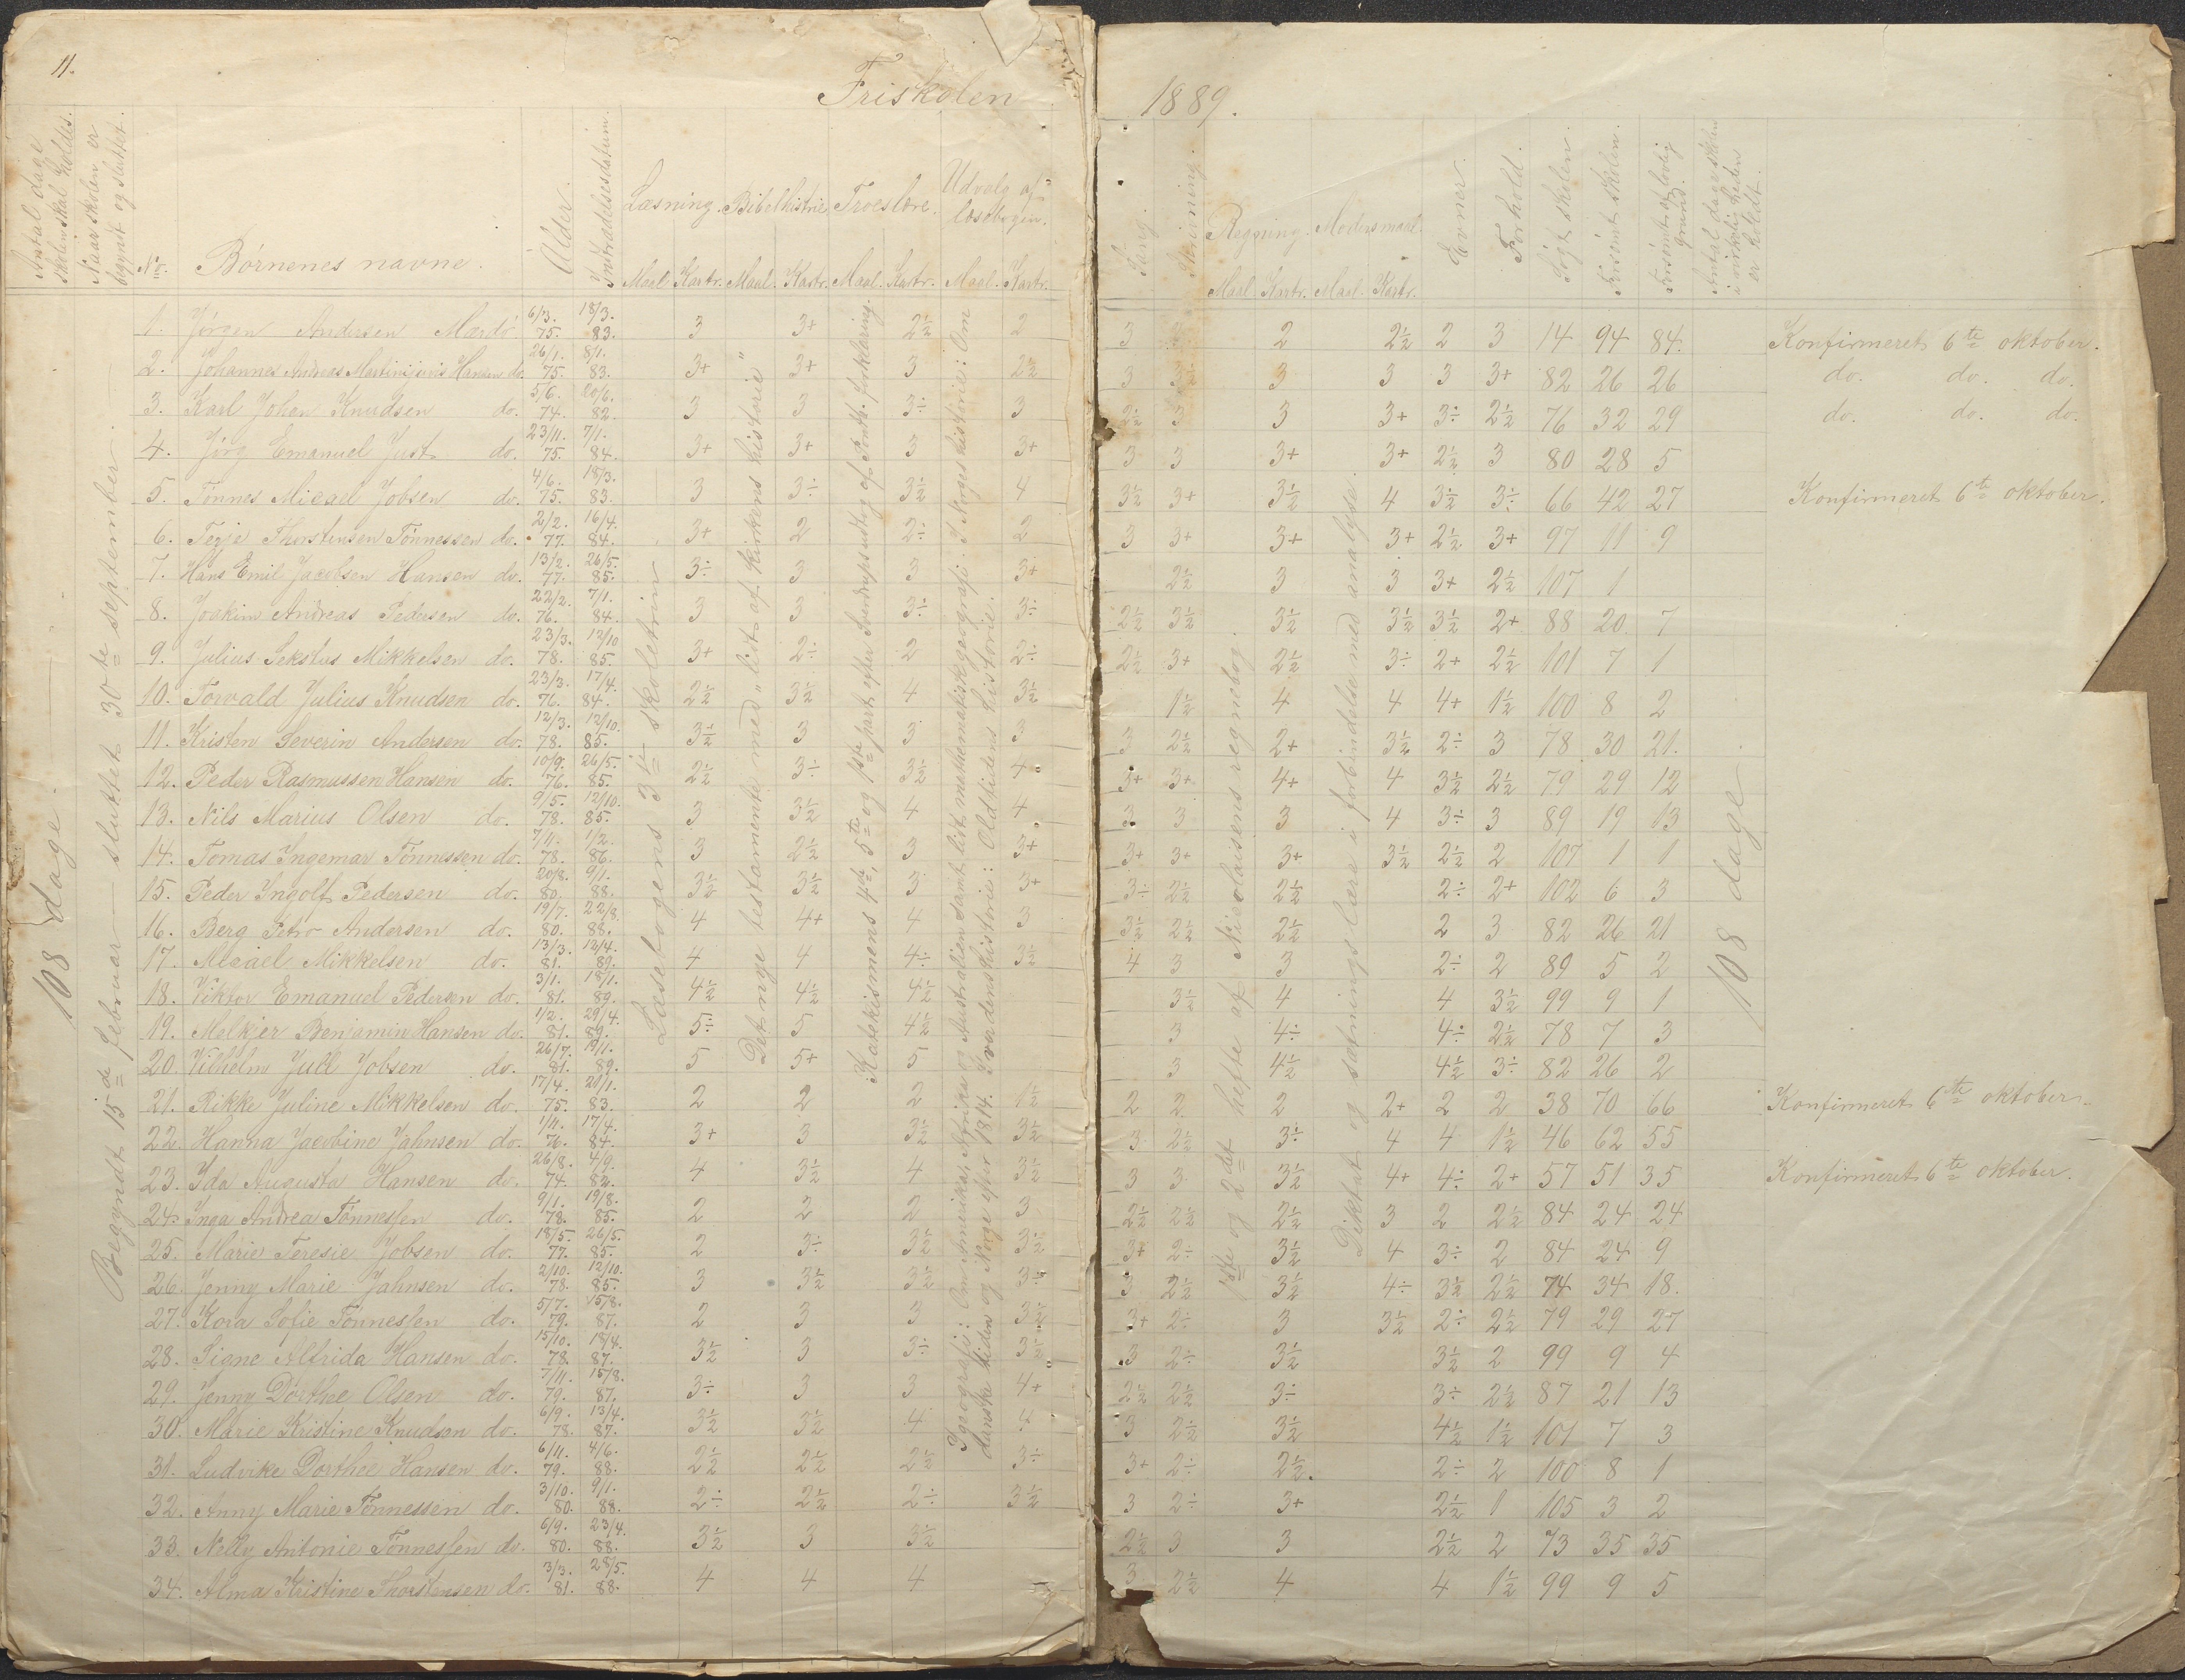 11.
Friskolen
1889.
Antal dage skolen skal holdes.
Naar skolen er begyndt og sluttet.
No. Børnenes navne. Alder. Indtrædelsesdatum. Læsning. Bibelhistorie Troeslære. Udvalg af læsebogen.
Maal Kartr. Maal. Kartr. Maal. Kartr. Maal. Kartr.
Sang. Skrivning. Regning. Modersmaal. Evner. Forhold. Søgt skolen. Forsømt skolen. Forsømt af lovlig grund. Antal dage skolen i virkeligheden er holdt.
Maal. Kartr. Maal. Kartr.
108 dage
Begyndt 15de februar — sluttet 30te september
Læsebogens 3die skoletrin
Det nye testamente med "lidt af kirkens historie"
Katekismens 4de, 5te og 1ste part efter Sverdrups udtog af Pontb. forklaring.
Geografi: Om Amerika, Afrika og Australien samt lidt mathematisk geografi. I Norges historie: Om
danske tiden og Norge efter 1814. I verdenshistorie: Oldtidens historie.
1ste og 2det hefte af Nicolaisens regnebog.
Diktat og sætningslære i forbindelse med analyse.
108 dage
1. Jørgen Andersen Mærdø 6/3. 75. 18/3. 83. 3 3+ 2½ 2 3 2 2 2½ 2 3 14 94 84. Konfirmeret 6te oktober.
2. Johannes Andreas Martinijevis Hansen do. 26/1. 75. 8/1. 83. 3+ 3+ 3 2½ 3 3½ 3 3 3 3+ 82 26 26 do. do. do.
3. Karl Johan Knudsen do. 5/6. 74. 20/6. 82. 3 3 3÷ 3 2½ 3 3 3+ 3÷ 2½ 76 32 29 do. do. do.
4. Jørg Emanuel Just do. 23/11. 75. 7/1. 84. 3+ 3+ 3 3+ 3 3 3+ 3+ 2½ 3 80 28 5
5. Tønnes Micael Jobsen do. 4/6. 75. 18/3. 83. 3 3÷ 3½ 4 3½ 3+ 3½ 4 3½ 3÷ 66 42 27 Konfirmeret 6te oktober.
6. Terje Thorstensen Tønnessen do. 2/2. 77. 16/4. 84. 3+ 2 2÷ 2 3 3+ 3+ 3+ 2½ 3+ 97 11 9
7. Hans Emil Jacobsen Hansen do. 13/2. 77. 26/5. 85. 3÷ 3 3 3+ 2½ 3 3 3+ 2½ 107 1
8. Joakim Andreas Pedersen do. 22/2. 76. 7/1. 84. 3 3 3÷ 3÷ 2½ 3½ 3½ 3½ 3½ 2+ 88 20 7
9. Julius Sekstus Mikkelsen do. 23/3. 78. 12/10 85. 3+ 2÷ 2 2÷ 2½ 3+ 2½ 3÷ 2+ 2½ 101 7 1
10. Torvald Julius Knudsen do. 23/3. 76. 17/4. 84. 2½ 3½ 4 3½ 1½ 4 4 4+ 1½ 100 8 2
11. Kristen Severin Andersen do. 12/3. 78. 12/10. 85. 3½ 3 3 3 3 2½ 2+ 3½ 2÷ 3 78 30 21.
12. Peder Rasmussen Hansen do. 10/9. 76. 26/5. 85. 2½ 3÷ 3½ 4 3+ 3+ 4+ 4 3½ 2½ 79 29 12
13. Nils Marius Olsen do. 9/5. 78. 12/10. 85. 3 3½ 4 4 3 3 3 4 3÷ 3 89 19 13
14. Tomas Ingemar Tønnessen do. 7/11. 78. 1/2. 86. 3 2½ 3 3+ 3+ 3+ 3+ 3½ 2½ 2 107 1 1
15. Peder Ingolf Pedersen do. 20/8. 80. 9/1. 88. 3½ 3½ 3 3+ 3÷ 2½ 2½ 2÷ 2+ 102 6 3
16. Berg Petro Andersen do. 19/7. 80. 22/8. 88. 4 4+ 4 3 3½ 2½ 2½ 2 3 82 26 21
17. Micael Mikkelsen do. 13/3. 81. 12/4. 89. 4 4 4÷ 3½ 4 3 3 2÷ 2 89 5 2
18. Viktor Emanuel Pedersen do. 3/1. 81. 18/1. 89. 4½ 4½ 4½ 3½ 4 4 3½ 99 9 1
19. Melkjer Benjamin Hansen do. 1/2. 81. 29/4. 89. 5÷ 5 4½ 3 4÷ 4÷ 2½ 78 7 3
20. Vilhelm Juell Jobsen do. 26/7. 81. 19/1. 89. 5 5+ 5 3 4½ 4½ 3÷ 82 26 2
21. Rikke Juline Mikkelsen do. 17/4. 75. 20/1. 83. 2 2 2 1½ 2 2 2 2+ 2 2 38 70 66 Konfirmeret 6te oktober.
22. Hanna Jacobine Jahnsen do. 1/11. 76. 17/4. 84. 3+ 3 3½ 3½ 3 2½ 3÷ 4 4 1½ 46 62 55
23. Ida Augusta Hansen do. 26/8. 74. 4/9. 82. 4 3½ 4 3½ 3 3 3½ 4+ 4÷ 2+ 57 51 35 Konfirmeret 6te oktober.
24. Inga Andrea Tønnessen do. 9/1. 78. 19/8. 85. 2 2 2 3 2½ 2½ 2½ 3 2 2½ 84 24 24
25. Marie Teresie Jobsen do. 18/5. 77. 26/5. 85. 2 3÷ 3½ 3½ 3+ 2÷ 3½ 4 3÷ 2 84 24 9
26. Jenny Marie Jahnsen do. 2/10. 78. 12/10. 85. 3 3½ 3½ 3÷ 3 2½ 3½ 4÷ 3½ 2½ 74 34 18.
27. Kora Sofie Tønnessen do. 5/7. 79. 15/8. 87. 2 3 3 3½ 3+ 2÷ 3 3½ 2÷ 2½ 79 29 27
28. Signe Alfrida Hansen do. 15/10. 78. 18/4. 87. 3½ 3 3÷ 3½ 3 2÷ 3½ 3½ 2 99 9 4
29. Jenny Dorthee Olsen do. 7/11. 79. 15/8. 87. 3÷ 3 3 4+ 2½ 2½ 3÷ 3÷ 2½ 87 21 13
30. Marie Kristine Knudsen do. 6/9. 78. 13/4. 87. 3½ 3½ 4 4 3 2½ 3½ 4½ 1½ 101 7 3
31. Ludvike Dorthee Hansen do. 6/11. 79. 4/6. 88. 2½ 2½ 2½ 3÷ 3+ 2÷ 2½. 2÷ 2 100 8 1
32. Anny Marie Tønnessen do. 3/10. 80. 9/1. 88. 2÷ 2½ 2÷ 3½ 3 2÷ 3+ 2½ 1 105 3 2
33. Nelly Antonie Tønnessen do. 6/9. 80. 23/4. 88. 3½ 3 3½ 2½ 3 3 2½ 2 73 35 35
34. Alma Kristine Thorstensen do. 3/3. 81. 28/5. 88. 4 4 4 3 2½ 4 4 1½ 99 9 5